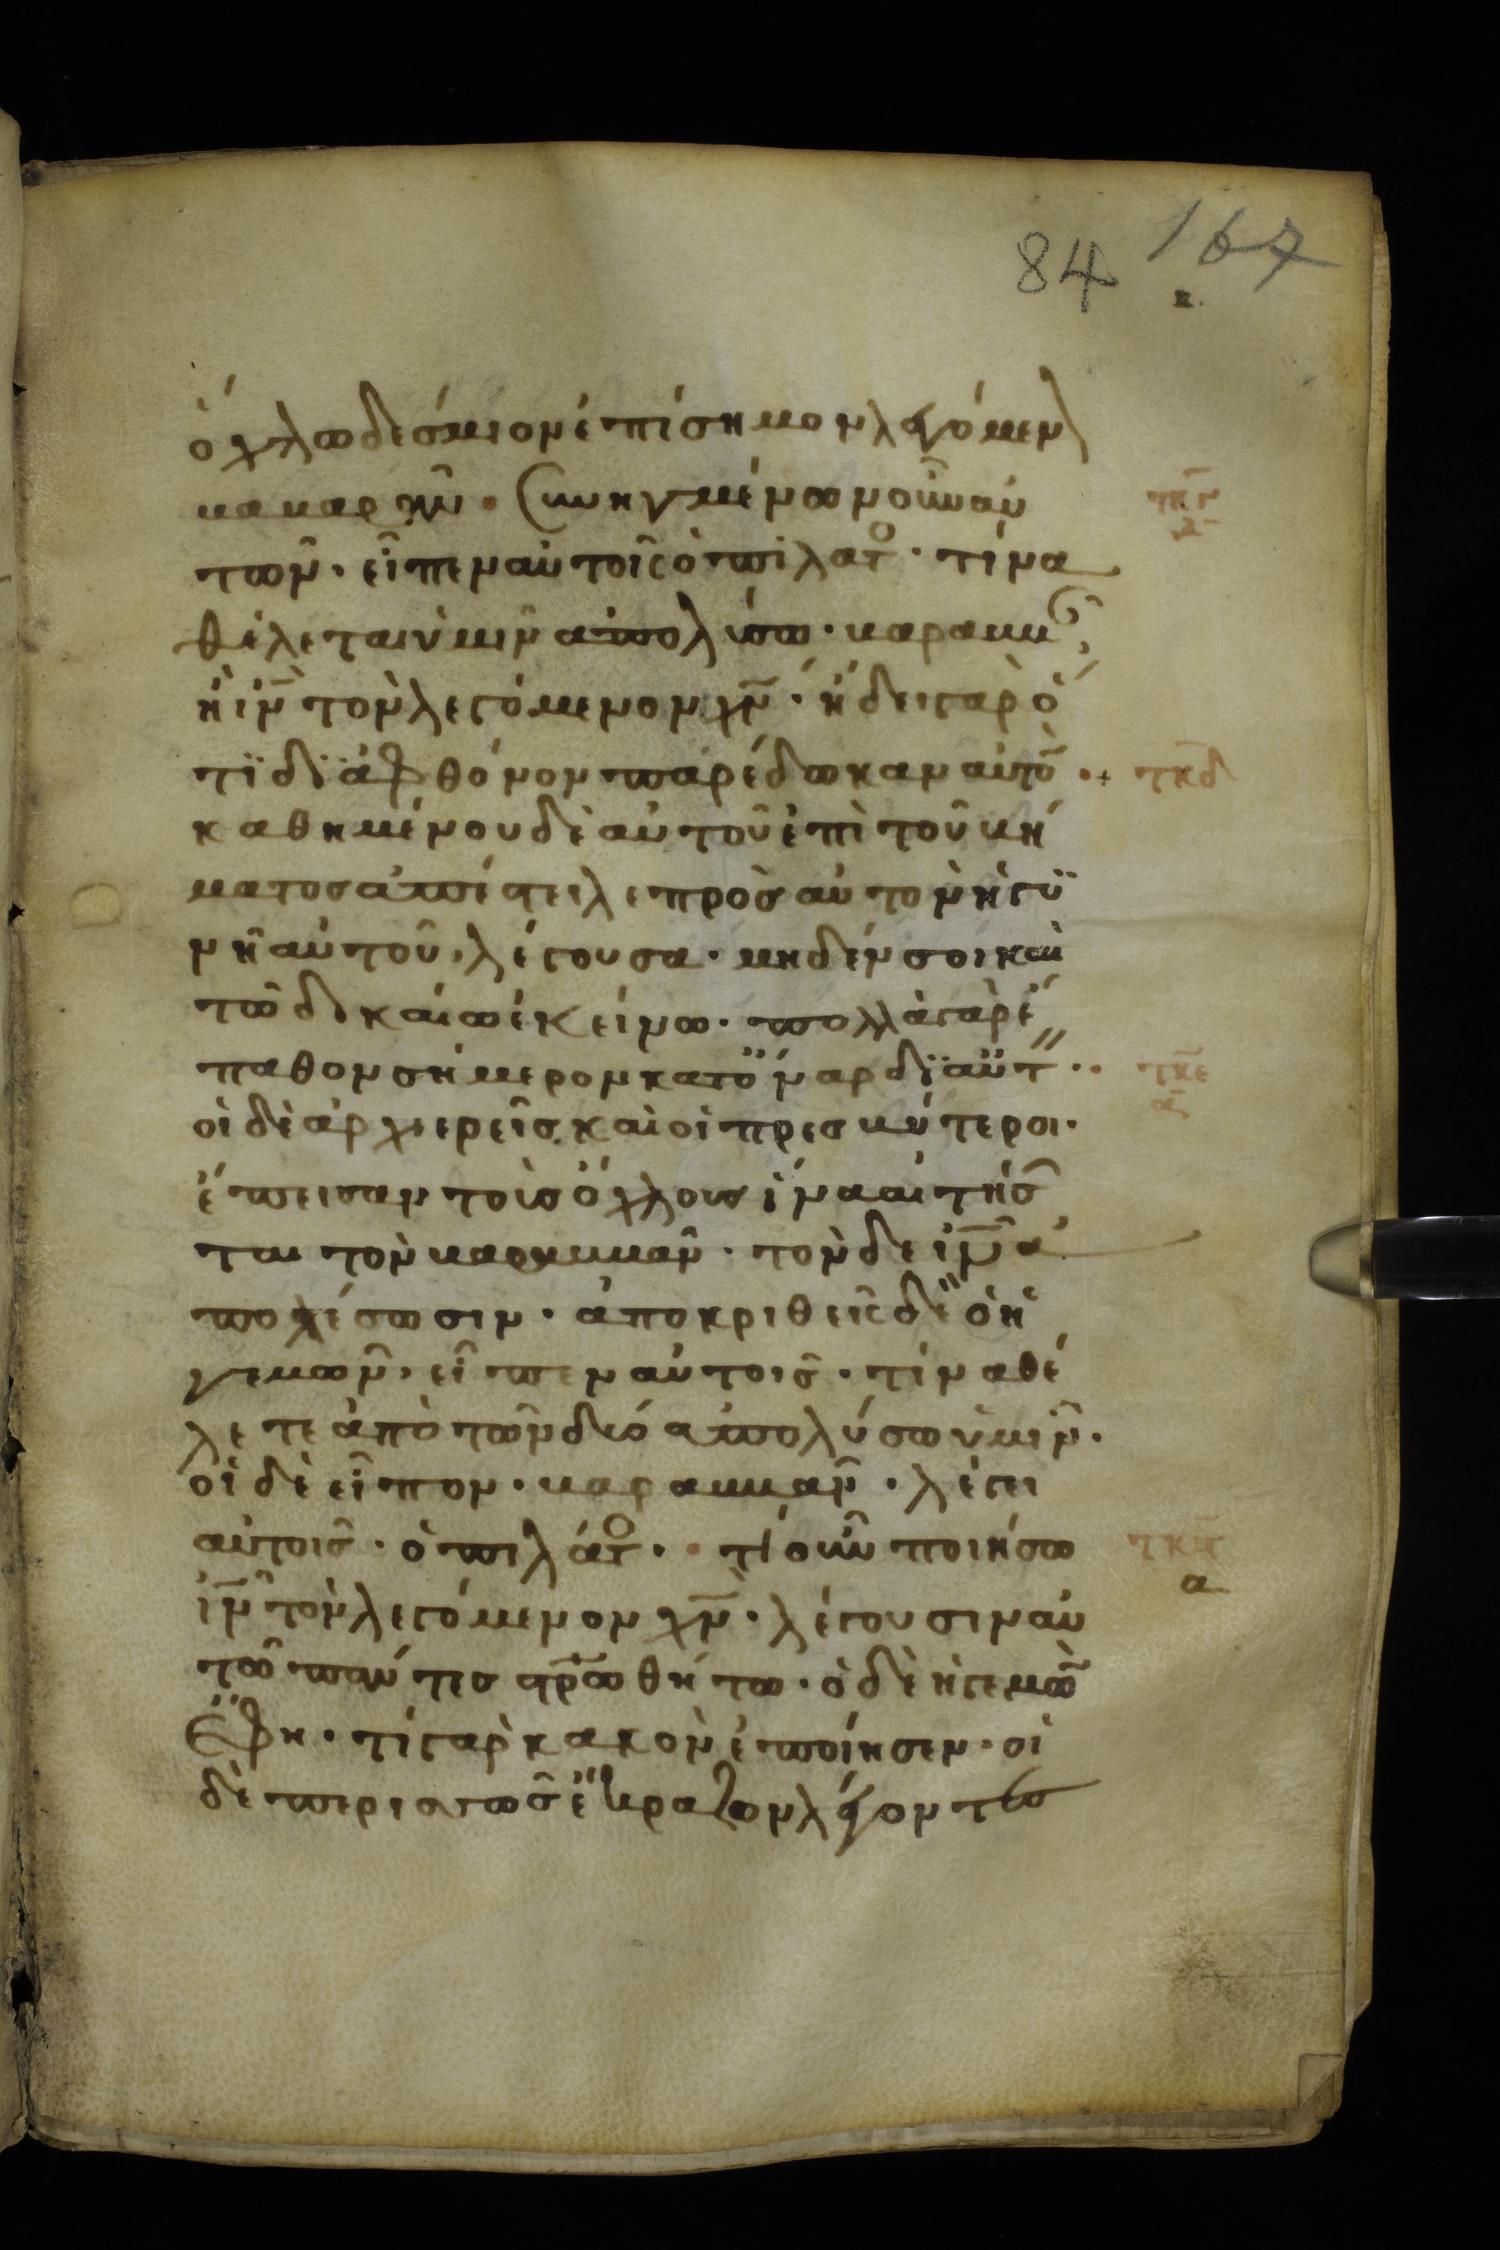 84 167
ὄχλω δεσμιον ἐπίσημον λεγόμεν
βαραββᾶν · Συνηγμένων οὖν αὐ
τῶν · εἶπεν αὐτοῖς ὁ πιλατο · τίνα
θέλεται ὑμῖν ἀπολύσω · βαραββᾶν
ἢ ἰν̄ τὸν λεγόμενον χν̄ · ἤδει γὰρ ὅ
τϊ δϊὰ φθόνον παρέδωκαν αὐτὸ̄ ·
τκδ
καθημένου δὲ αὐτοῦ ἐπὶ τοῦ βή
ματος ἀπέστειλε πρὸς αὐτὸν ἡ γϋ
νὴ αὐτοῦ · λέγουσα · μηδέν σοι καὶ
τῶ δικαίω ἐκείνω · πολλὰ γὰρ ἔ
παθον σήμερον κατ ὄναρ δϊ αὐτ ·
τκε
α
οἱ δὲ ἀρχιερεῖς καὶ οἱ πρεσβύτεροι ·
ἔπεισαν τοὺς ὄχλους ἵνα αἰτήσ
ται τὸν βαραββᾶν · τὸν δε ἰν̄ ἀ
πολέσωσιν · ἀποκριθεὶς δὲ ὁ ἡ
γεμὼν · εἶπεν αὐτοῖς · τίνα θέ
λετε ἀπὸ τῶν δύο ἀπολύσω ὑμῖν ·
οἱ δὲ εἶπον · βαραββᾶν · λέγει
αὐτοῖς · ὁ πιλάτο · τί οὖν ποιήσω
α
ἰν̄ τὸν λεγόμενον χν̄ · λέγουσιν αὐ
τῶ πάντες στρ̄ωθήτω · ὁ δὲ ἡγεμὼ̄
ἔφη · τί γὰρ κακὸν ἐποίησεν · οἱ
δὲ περισσῶς ἔκραζον λέγοντες